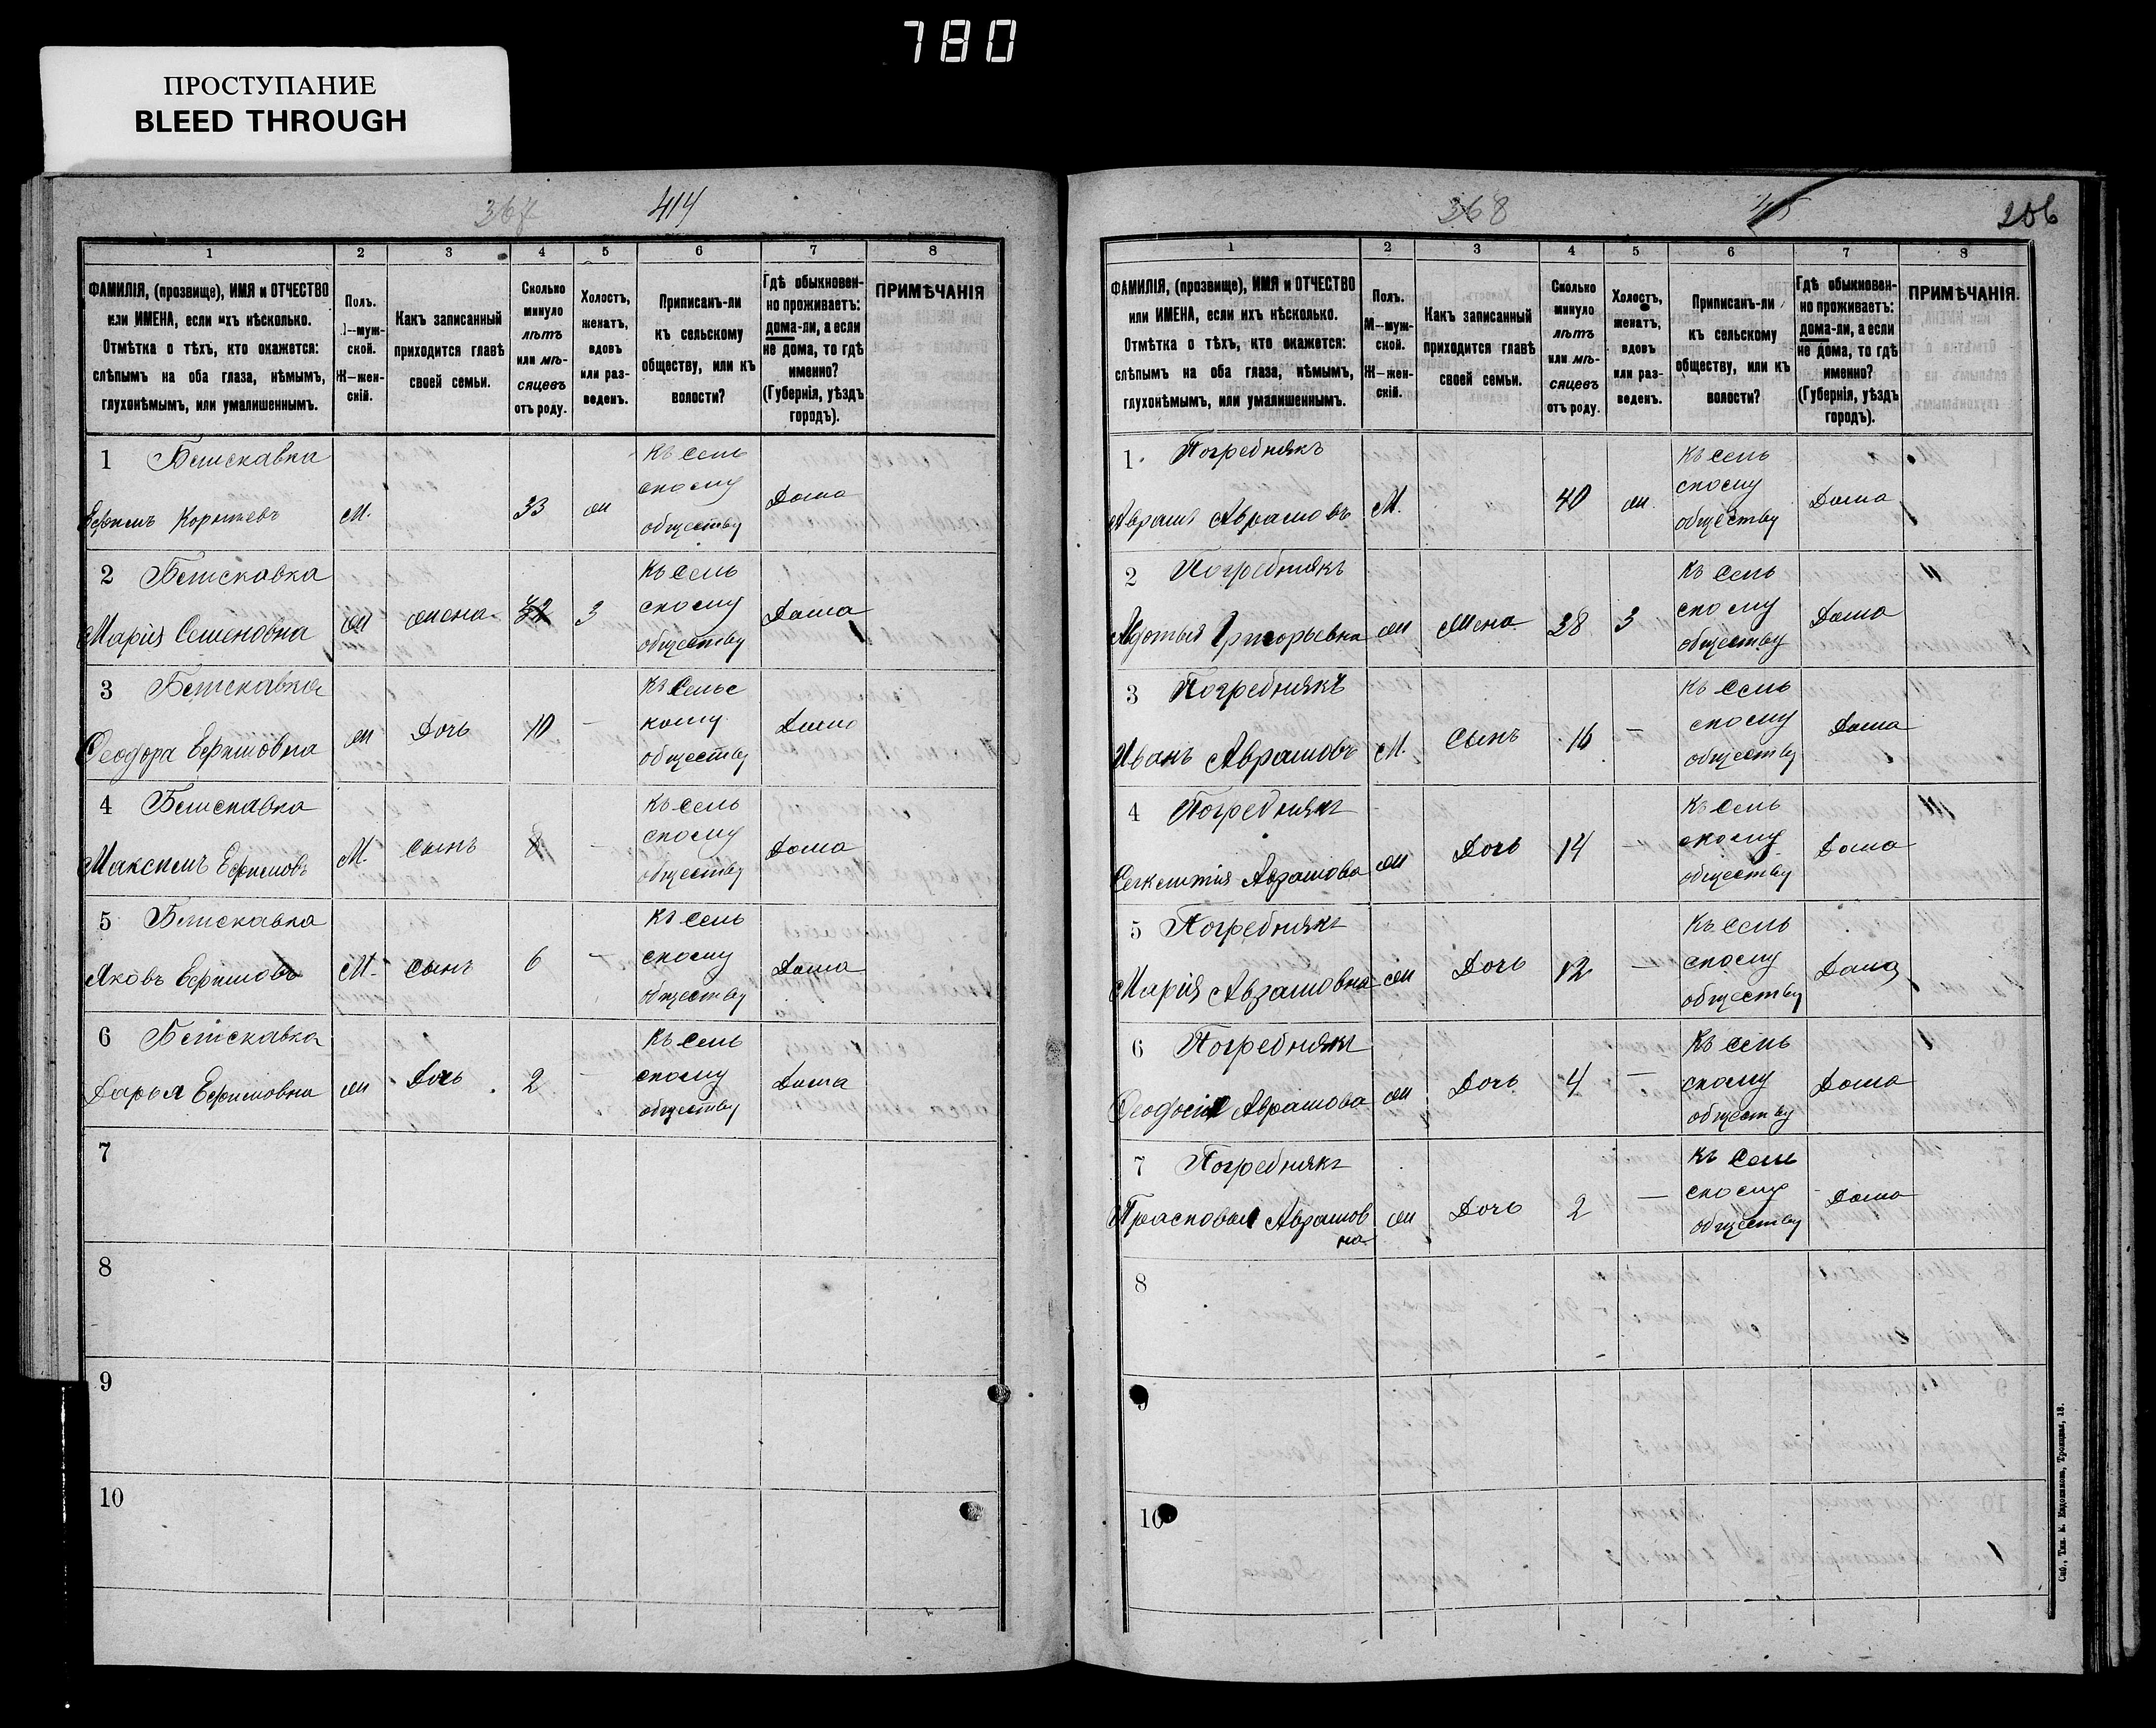 780
ПРОСТУПАНИЕ
BLEED THROUGH
367 414
1 2 3 4 5 6 7 8
ФАМИЛІЯ, (прозвище), ИМЯ и ОТЧЕСТВО или ИМЕНА, если ихъ нѣсколько. Отмѣтка о тѣхъ, кто окажется: слѣпымъ на оба глаза, нѣмымъ, глухонѣмымъ, или умалишеннымъ.
Полъ. М—мужской. Ж—женскій.
Какъ записанный приходится главѣ своей семьи.
Сколько минуло лѣтъ или мѣсяцевъ отъ роду.
Холостъ, женатъ, вдовъ или разведенъ.
Приписанъ-ли къ сельскому обществу, или къ волости?
Гдѣ обыкновенно проживаетъ: дома-ли, а если не дома, то гдѣ именно? (Губернія, уѣздъ городъ).
ПРИМѢЧАНІЯ
1
М. 33 Къ сельскому обществу Дома
2
Марія Семеновна ж жена 3 Къ сельскому обществу Дома
3
Ѳеодора Ефимовна ж Дочь 10 — Къ сельскому обществу Дома
4
Максимъ Ефимовъ М. сынъ — Къ сельскому обществу Дома
5
Яковъ Ефимовъ М. сынъ 6 — Къ сельскому обществу Дома
6
Дарья Ефимовна ж Дочь 2 — Къ сельскому обществу Дома
7
8
9
10
368 206
1 2 3 4 5 6 7 8
ФАМИЛІЯ, (прозвище), ИМЯ и ОТЧЕСТВО или ИМЕНА, если ихъ нѣсколько. Отмѣтка о тѣхъ, кто окажется: слѣпымъ на оба глаза, нѣмымъ, глухонѣмымъ, или умалишеннымъ.
Полъ. М—мужской. Ж—женскій.
Какъ записанный приходится главѣ своей семьи.
Сколько минуло лѣтъ или мѣсяцевъ отъ роду.
Холостъ, женатъ, вдовъ или разведенъ.
Приписанъ-ли къ сельскому обществу, или къ волости?
Гдѣ обыкновенно проживаетъ: дома-ли, а если не дома, то гдѣ именно? (Губернія, уѣздъ городъ).
ПРИМѢЧАНІЯ.
1 Погребнякъ
Аврамъ Аврамовъ М. 40 ж. Къ сельскому обществу Дома
2 Погребнякъ
Авдотья Григорьевна ж Жена 38 3 Къ сельскому обществу Дома
3 Погребнякъ
Иванъ Аврамовъ М. Сынъ 16 — Къ сельскому обществу Дома
4 Погребнякъ
Аврамова ж Дочь 14 — Къ сельскому обществу Дома
5 Погребнякъ
Марія Аврамовна ж Дочь 12 — Къ сельскому обществу Дома
6 Погребнякъ
Ѳеодосія Аврамова ж Дочь 4 — Къ сельскому обществу Дома
7 Погребнякъ
Прасковья Аврамовна ж Дочь 2 — Къ сельскому обществу Дома
8
9
10
Спб., Тип. К. Евдокимова, Троицкая, 18.